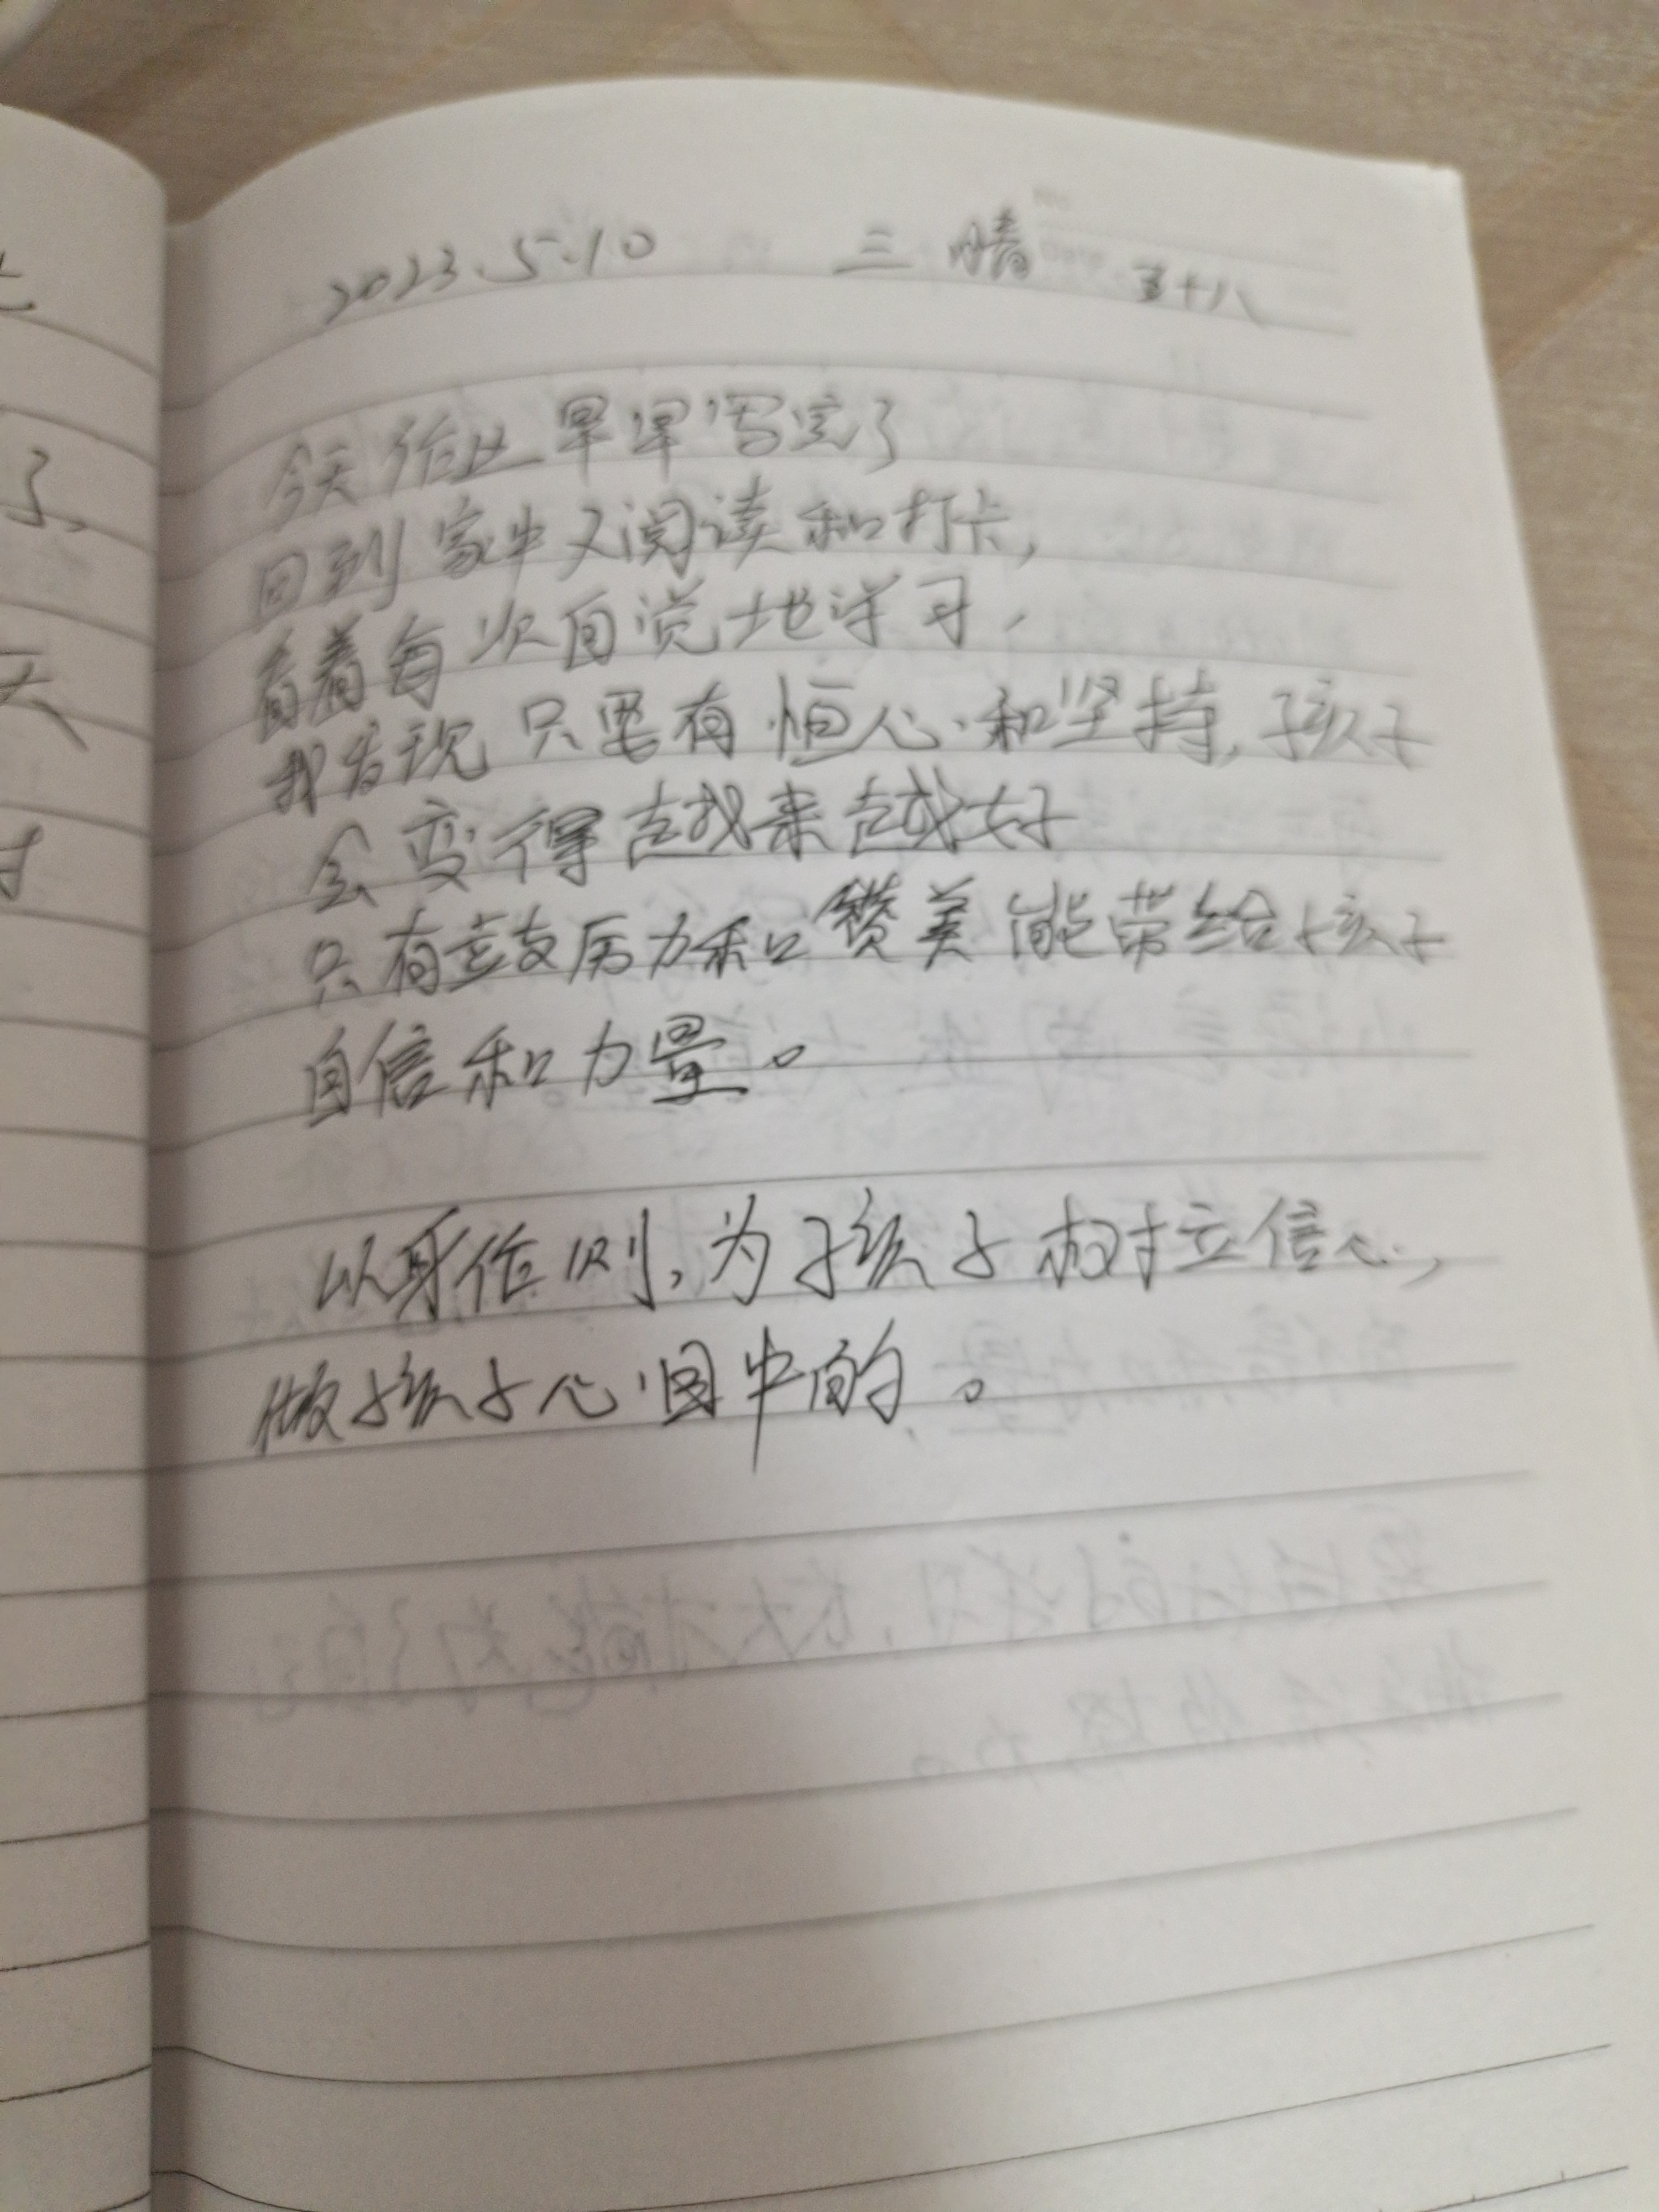 2023.5.10 三 晴 五十八
今天作业早早写完了
回到家中又阅读和打卡,
看着每次自觉地学习,
我发现只要有恒心和坚持,孩子
会变得越来越好
只有鼓励和赞美能带给孩子
自信和力量。
以身作则,为孩子树立信心,
做孩子心目中的。